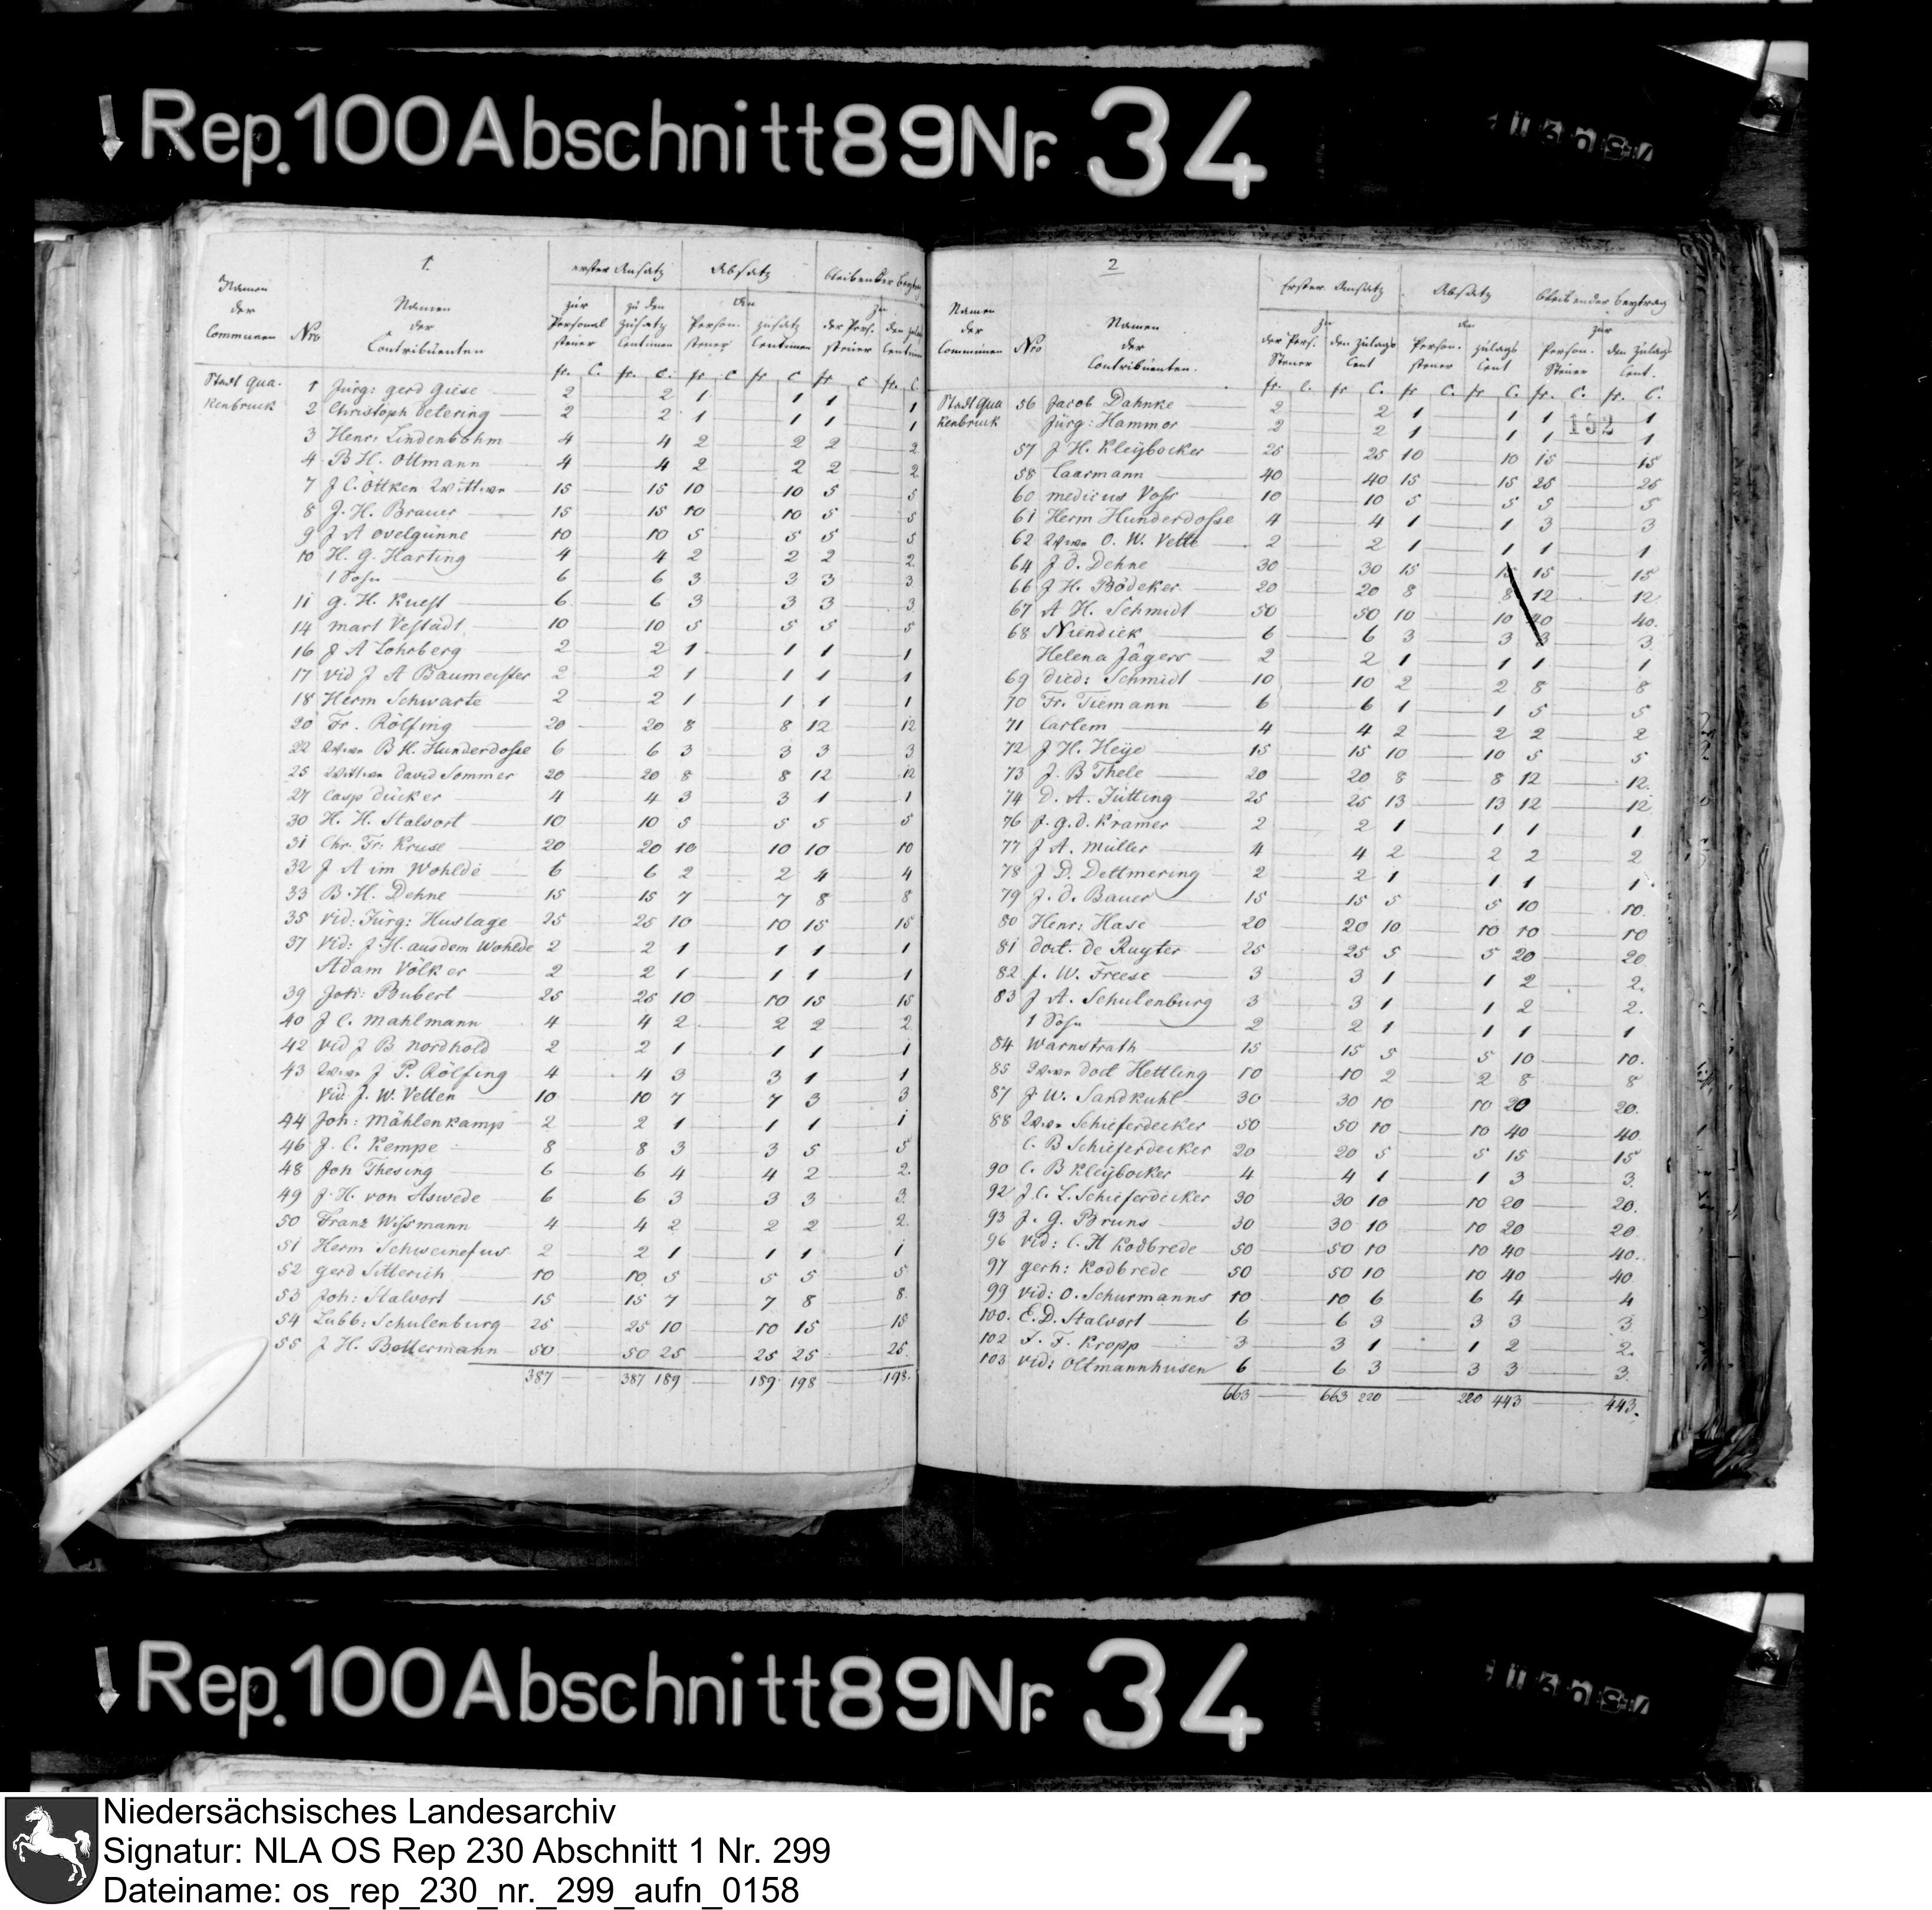 Rep. 100 Abschnitt 89 Nr. 34
1.
Namen der Communen
Nro
Namen der Contribuenten
erster Ansatz
Absatz
bleibender Beytrag
zur Personal steuer
zu den Zusatz Centimen
an
Person. steuer
Zusatz Centimen
zu
der Pers. steuer
den
fr. C. fr. C. fr C fr C fr C fr. C.
Stadt Qua- 1 Jürg: Gerd Giese 2 2 1 1 1 1
kenbruck 2 Christoph Detering 2 2 1 1 1 1
3 Henr: Lindenböhm 4 4 2 2 2 2
4 B H. Ottmann 4 4 2 2 2 2
7 J C. Ottken Wittwe 15 15 10 10 5 5
8 J. H. Brauer 15 15 10 10 5 5
9 J A Ovelgünne 10 10 5 5 5 5
10 H. G. Harting 4 4 2 2 2 2
1 Sohn 6 6 3 3 3 3
11 G. H. Kuest 6 6 3 3 3 3
14 Mart Vestädt 10 10 5 5 5 5
16 J A Lohrberg 2 2 1 1 1 1
17 Vid J A Baumeister 2 2 1 1 1 1
18 Herm Schwarte 2 2 1 1 1 1
20 Fr. Rölfing 20 20 8 8 12 12
22 Wwe B H. Hunderdosse 6 6 3 3 3 3
25 Wittwe David Sommer 20 20 8 8 12 12
27 Casp Dücker 4 4 3 3 1 1
30 H. H. Stalvort 10 10 5 5 5 5
31 Chr. Fr. Kruse 20 20 10 10 10 10
32 J A im Wohlde 6 6 2 2 4 4
33 B. H. Dehne 15 15 7 7 8 8
35 Vid: Jürg: Huslage 25 25 10 10 15 15
37 Vid: J. H. aus dem Wohlde 2 2 1 1 1 1
Adam Völker 2 2 1 1 1 1
39 Joh: Bubert 25 25 10 10 15 15
40 J C. Mahlmann 4 4 2 2 2 2
42 Vid J B Nordhold 2 2 1 1 1 1
43 Wwe J P. Rölfing 4 4 3 3 1 1
Vid: J. W. Vetten 10 10 7 7 3 3
44 Joh: Mählenkamp 2 2 1 1 1 1
46 J. C. Kempe 8 8 3 3 5 5
48 Joh Thesing 6 6 4 4 2 2.
49 J. H. von Aswede 6 6 3 3 3 3.
50 Franz Wissmann 4 4 2 2 2 2.
51 Herm Schweinefus 2 2 1 1 1 1
52 Gerd Sitterich 10 10 5 5 5 5
53 Joh: Stalvort 15 15 7 7 8 8.
54 Lubb: Schulenburg 25 25 10 10 15 15
55 J H. Bottermann 50 50 25 25 25 25.
387 387 189 189 198 198.
2
Namen der Communen
Nro
Namen der Contribuenten.
Erster Ansatz
Absatz
bleibender Beytrag
zu
der Pers. Steuer
den Zulags Cent
an
Person. steuer
Zulags Cent
zur
Person. Steuer
den Zulags Cent.
fr. C. fr C. fr C. fr C. fr. C. fr. C.
Stadt Qua 56 Jacob Dahnke 2 2 1 1 1 1
kenbruck Jürg: Hammor 2 2 1 1 1 1
132
57 J H. Kleybocker 25 25 10 10 15 15
58 Caarmann 40 40 15 15 25 25
60 Medicus Voss 10 10 5 5 5 5
61 Herm Hunderdosse 4 4 1 1 3 3
62 Wwe O. W. Vette 2 2 1 1 1 1
64 J D. Dehne 30 30 15 15 15 15
66 J H. Bödeker 20 20 8 8 12 12
67 A H. Schmidt 50 50 10 10 40 40.
68 Niendiek 6 6 3 3 3 3
Helena Jägers 2 2 1 1 1 1
69 Died: Schmidt 10 10 2 2 8 8
70 Fr. Tiemann 6 6 1 1 5 5
71 Carlem 4 4 2 2 2 2
72 J H. Heye 15 15 10 10 5 5
73 J. B Thele 20 20 8 8 12 12.
74 D. A. Jütting 25 25 13 13 12 12
76 J. G. D. Kramer 2 2 1 1 1 1
77 J A. Müller 4 4 2 2 2 2
78 J D. Dettmering 2 2 1 1 1 1.
79 J. D. Bauer 15 15 5 5 10 10.
80 Henr: Hase 20 20 10 10 10 10
81 Doct. de Ruyter 25 25 5 5 20 20
82 J. W. Freese 3 3 1 1 2 2.
83 J A. Schulenburg 3 3 1 1 2 2.
1 Sohn 2 2 1 1 1 1
84 Warnstrath 15 15 5 5 10 10.
85 Wwe Doct Hettling 10 10 2 2 8 8
87 J W. Sandkuhl 30 30 10 10 20 20.
88 Wwe Schieferdecker 50 50 10 10 40 40
C. B Schieferdecker 20 20 5 5 15 15
90 C. B Kleybocker 4 4 1 1 3 3
92 J. C. L. Schieferdecker 30 30 10 10 20 20.
93 J. G. Bruns 30 30 10 10 20 20
96 Vid: C. A Kodbrede 50 50 10 10 40 40.
97 Gerh: Kodbrede 50 50 10 10 40 40
99 Vid: O. Schurmanns 10 10 6 6 4 4
100. E. D. Stalvort 6 6 3 3 3 3
102 J. F. Kropp 3 3 1 1 2 2.
103 Vid: Oltmannhusen 6 6 3 3 3 3.
663 663 220 220 443 443.
Rep. 100 Abschnitt 89 Nr. 34
Niedersächsisches Landesarchiv
Signatur: NLA OS Rep 230 Abschnitt 1 Nr. 299
Dateiname: os_rep_230_nr._299_aufn_0158